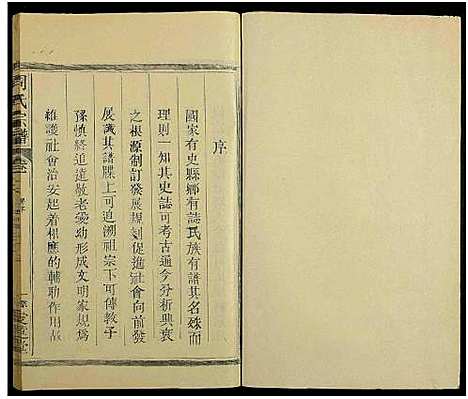 序
國家有史縣鄉有誌氏族有譜其名殊而
理則一知其史誌可考古通今分析興衰
之根源制訂發展規划促進社會向前發
展識其譜牒上可追溯祖宗下可傳教子
孫慎終追遠敬老愛幼形成文明家規為
維護社會治安起着相應的輔助作用故
周氏宗譜